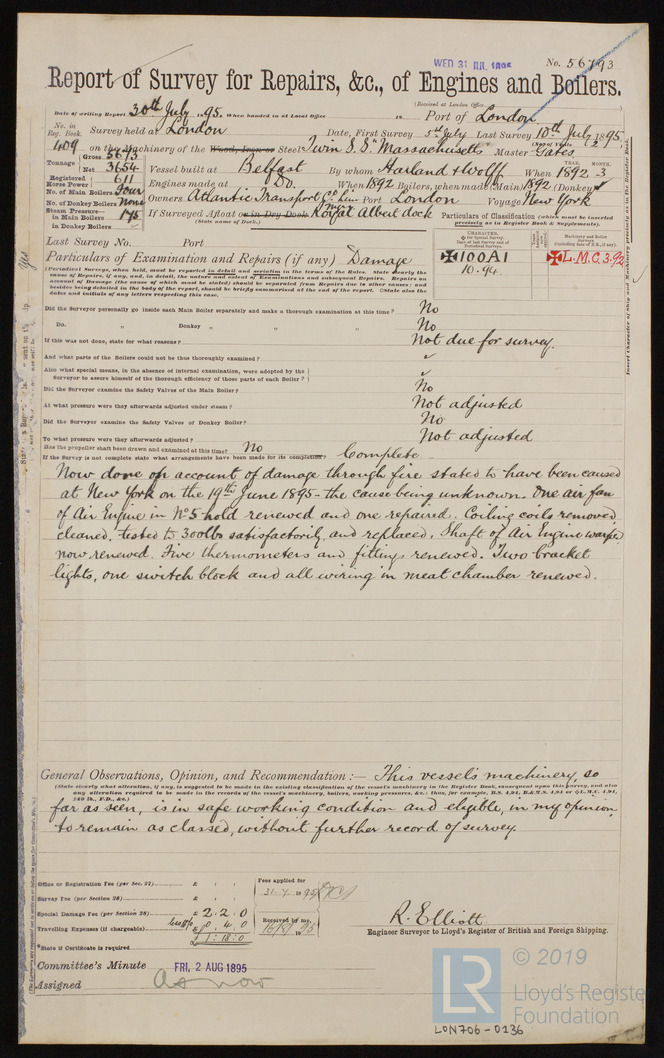 WED 31 JUL 1895
No. 56793
Report of Survey for Repairs, &c., of Engines and Boilers.
(Received at London Office
Date of writing Report 30th July 1895. When handed in at Local Office 18 Port of London.
No. in Reg. Book. Survey held at London Date, First Survey 5th July Last Survey 10th July 1895
(No. of Visits 2)
409 on the Machinery of the Wood, Iron or Steel Twin S.S. "Massachusetts" Master Gates
Tonnage Gross 5673
Net 3654
Vessel built at Belfast By whom Harland & Wolff When 1892 YEAR. MONTH. 3
Registered Horse Power 611
Engines made at Do. When 1892 Boilers, when made (Main) 1892 (Donkey)
No. of Main Boilers Four
Owners Atlantic Transport Co. Lim Port London Voyage New York
No. of Donkey Boilers None
Steam Pressure— in Main Boilers 175
in Donkey Boilers
If Surveyed Afloat or in Dry Dock Royal Albert dock
(State name of Dock.)
Particulars of Classification (which must be inserted precisely as in Register Book & Supplements).
Last Survey No. Port
CHARACTER.
for Special Survey.
Date of last Survey and of Periodical Surveys.
Machinery and Boiler Surveys
(including date of N.B., if any).
Particulars of Examination and Repairs (if any) Damage
✠100A1
10.94
✠L.M.C. 3.92
(Periodical Surveys, when held, must be reported in detail and seriatim in the terms of the Rules. State clearly the
cause of Repairs, if any, and, in detail, the nature and extent of Examinations and subsequent Repairs. Repairs on
account of Damage (the cause of which must be stated) should be separated from Repairs due to other causes; and
besides being detailed in the body of the report, should be briefly summarised at the end of the report. State also the
dates and initials of any letters respecting this case.
Did the Surveyor personally go inside each Main Boiler separately and make a thorough examination at this time? No
Do. „ Donkey „ „ „ „ ? No
If this was not done, state for what reasons? Not due for survey.
And what parts of the Boilers could not be thus thoroughly examined?
Also what special means, in the absence of internal examination, were adopted by the
Surveyor to assure himself of the thorough efficiency of those parts of each Boiler?
Did the Surveyor examine the Safety Valves of the Main Boiler? No
At what pressure were they afterwards adjusted under steam? Not adjusted
Did the Surveyor examine the Safety Valves of Donkey Boiler? No
To what pressure were they afterwards adjusted? Not adjusted
Has the propeller shaft been drawn and examined at this time? No
If the Survey is not complete state what arrangements have been made for its completion? Complete
Now done on account of damage through fire stated to have been caused
at New York on the 19th June 1895 - the cause being unknown. One air fan
of Air Engine in No 5 hold renewed and one repaired. Coiling coils removed,
cleaned, tested to 300lbs satisfactorily and replaced. Shaft of Air Engine warped
now renewed. Five thermometers and fittings renewed. Two bracket
lights, one switch block and all wiring in meat chamber renewed.
General Observations, Opinion, and Recommendation:— This vessel's machinery, so
(State clearly what alteration, if any, is suggested to be made in the existing classification of the vessel's machinery in the Register Book, consequent upon this survey, and also
any alteration required to be made in the records of the vessel's machinery, boilers, working pressures, &c.; thus, for example, B.S. 4,94, B.&M.S. 4,94 or ✠L.M.C. 4,94,
140 lb., F.D., &c.)
far as seen, is in safe working condition and eligible, in my opinion,
to remain as classed, without further record of survey.
Office or Registration Fee (per Sec. 27) £ : :
Fees applied for
31.7.1895
Survey Fee (per Section 28) £ : :
Special Damage Fee (per Section 28) £ 2.2.0
less 10% 0.4.0
Travelling Expenses (if chargeable) £
Received by me,
16/8/1895
£1.18.0
*State if Certificate is required
R. Elliott
Engineer Surveyor to Lloyd's Register of British and Foreign Shipping.
Committee's Minute FRI. 2 AUG 1895
Assigned As now
LR
© 2019
Lloyd's Register
Foundation
LON706-0136